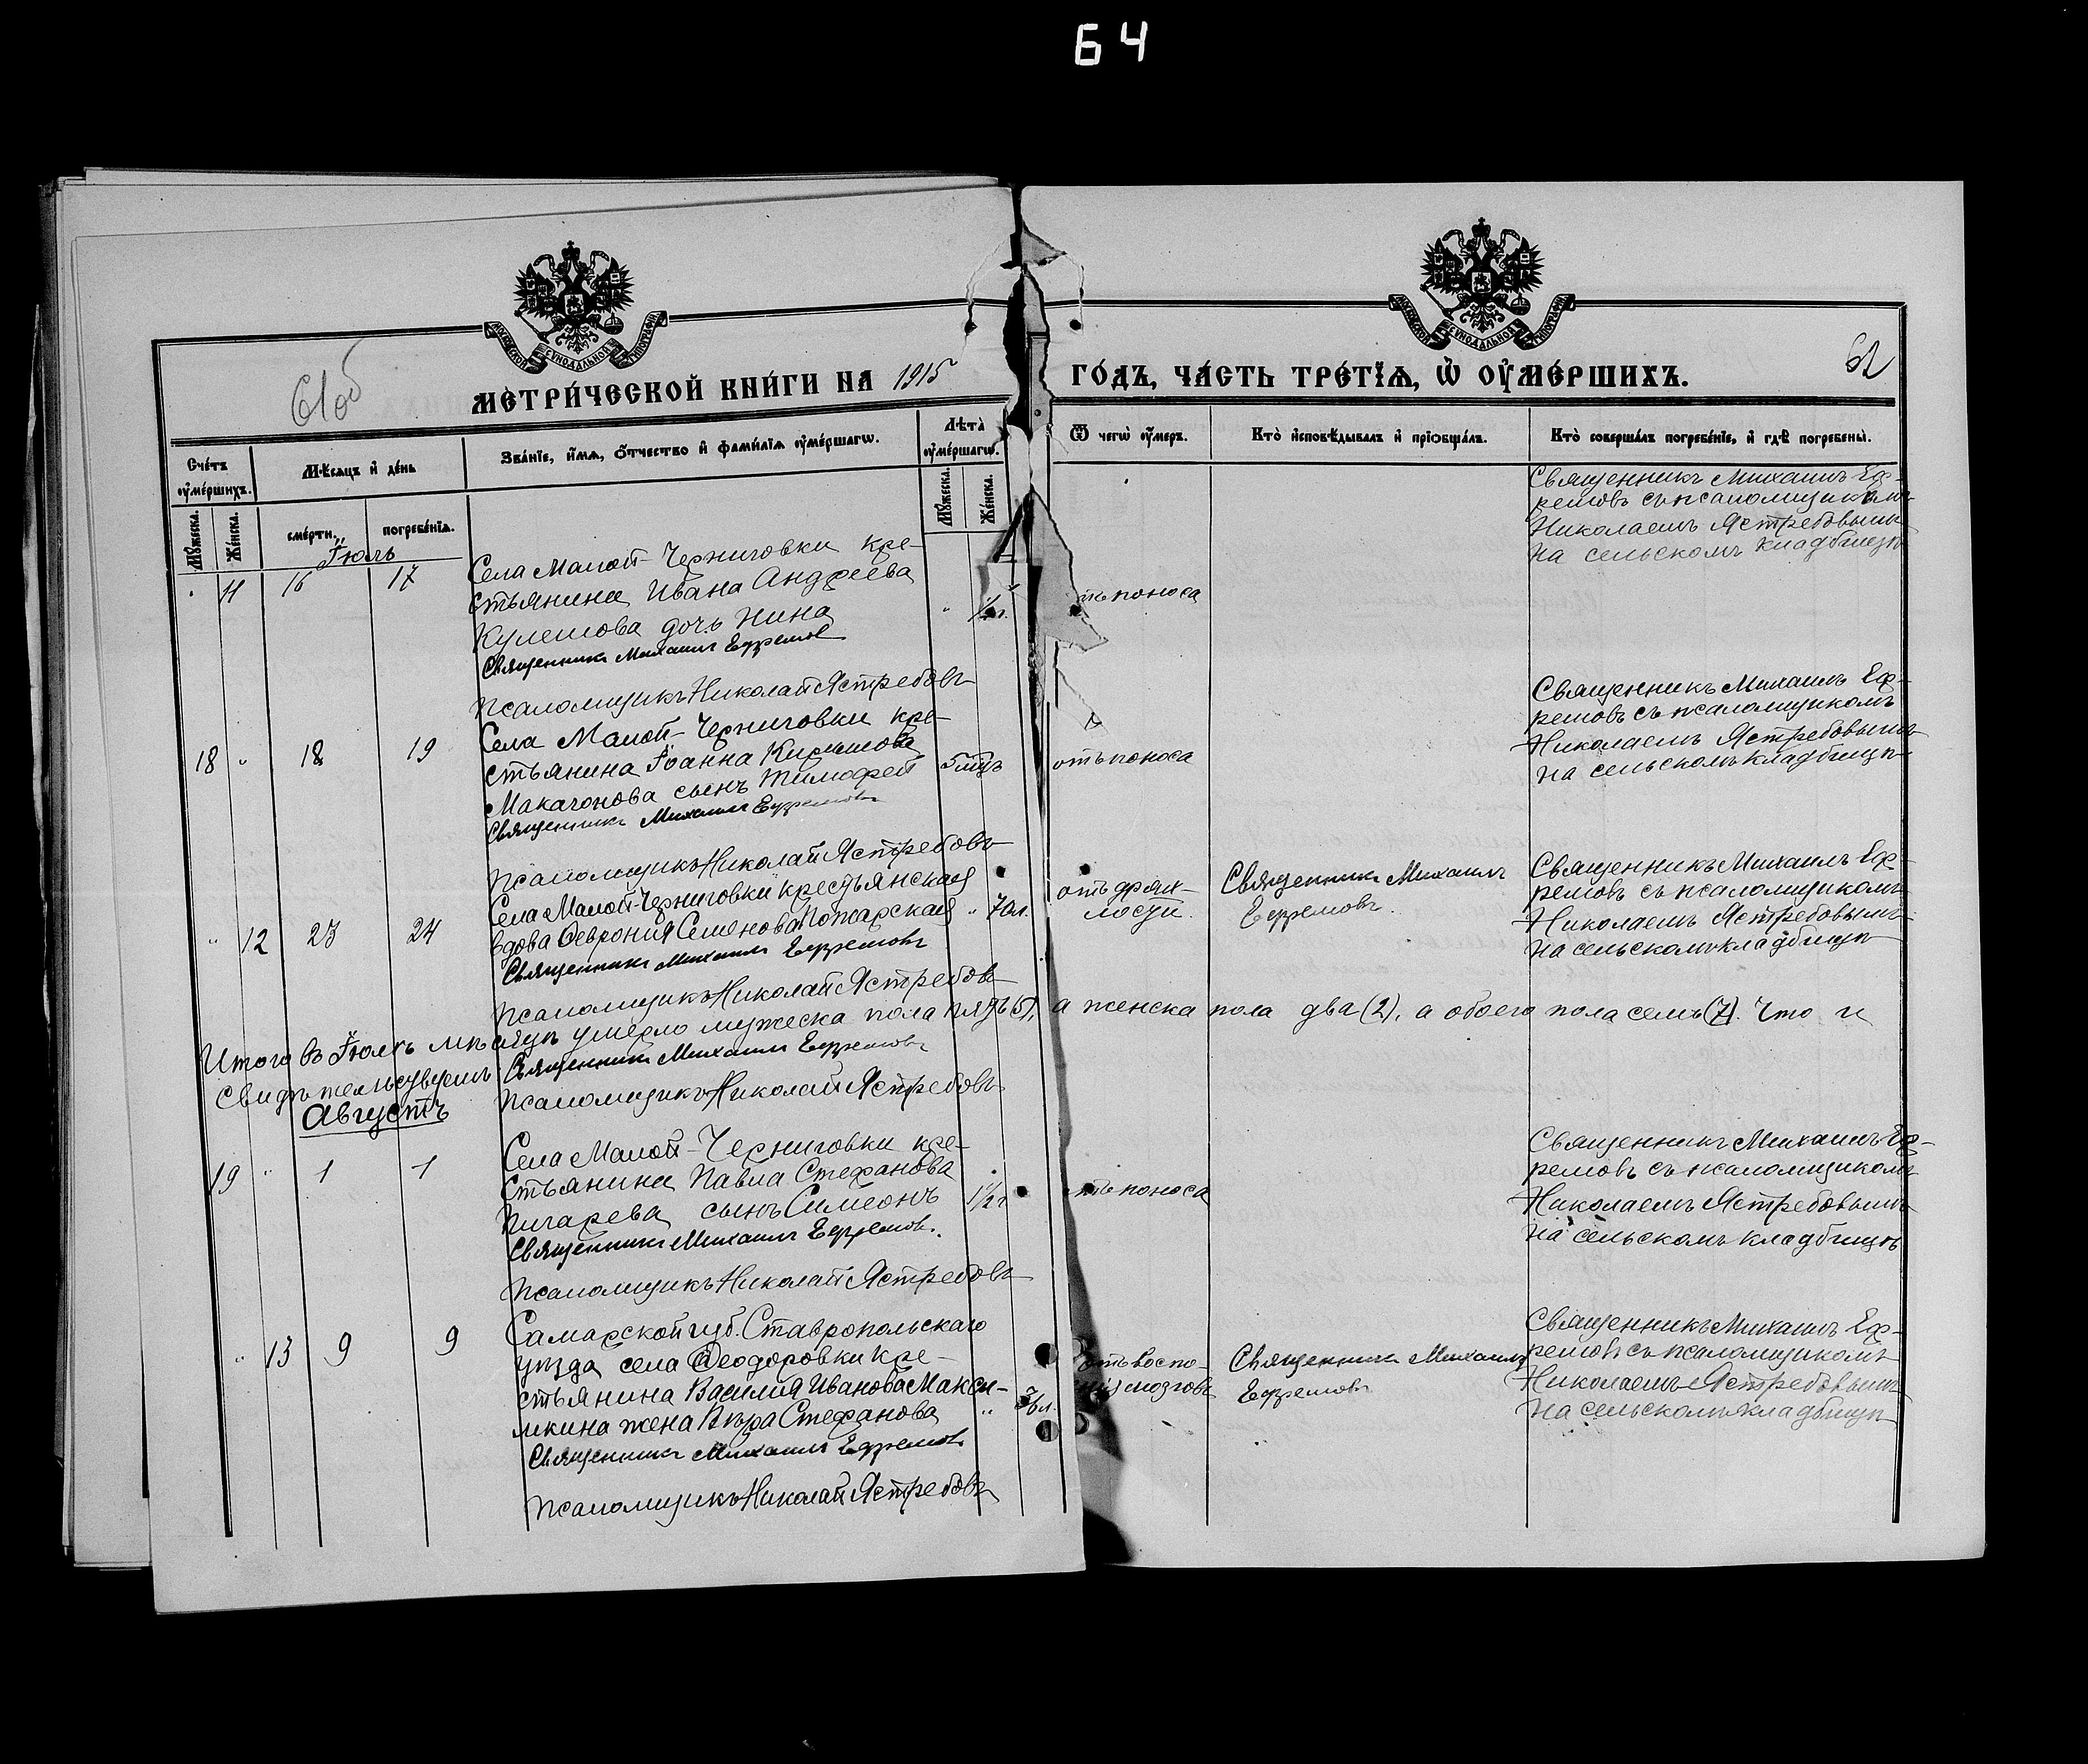 64
61об
62
МОСКОВСКОЙ СѴНОДАЛЬНОЙ ТИПОГРАФІИ
МОСКОВСКОЙ СѴНОДАЛЬНОЙ ТИПОГРАФІИ
МЕТРИ́ЧЕСКОЙ КНИ́ГИ НА 1915 ГО́ДЪ, ЧА́СТЬ ТРЕ́ТІѦ, Ѿ ОУ҆МЕ́РШИХЪ.
Сче́тъ оу҆ме́ршихъ.
Мѣ́сѧцъ и҆ де́нь
Зва́нїе, и҆́мѧ, ѻ҆́тчество и҆ фами́лїѧ оу҆ме́ршагѡ.
Лѣ́та оу҆ме́ршагѡ.
Ѿ чегѡ̀ оу҆́меръ.
Кто̀ и҆сповѣ́дывалъ и҆ прїѡбща́лъ.
Кто̀ соверша́лъ погребе́нїе, и҆ гдѣ̀ погребены̀.
Мꙋ́жеска.
Же́нска.
сме́рти.
погребе́нїѧ.
Мꙋ́жеска.
Же́нска.
Іюль
" 11 16 17
Села Малой-Черниговки кре-
стьянина Ивана Андреева
Кулешова дочь Нина
Священникъ Михаилъ Ефремов
Псаломщикъ Николай Ястребовъ
отъ поноса
Священникъ Михаилъ Еф-
ремовъ съ псаломщикомъ
Николаемъ Ястребовымъ
на сельскомъ кладбищѣ
18 " 18 19
Села Малой-Черниговки кре-
стьянина Іоанна Кириллова
Макагонова сынъ Тимофей
Священникъ Михаилъ Ефремовъ
Псаломщикъ Николай Ястребовъ
5 мѣц
отъ поноса
Священникъ Михаилъ Еф-
ремовъ съ псаломщикомъ
Николаемъ Ястребовымъ
на сельскомъ кладбищѣ
" 12 23 24
Села Малой-Черниговки крестьянская
вдова Ѳеврония Семенова Пожарская
Священникъ Михаилъ Ефремовъ
Псаломщикъ Николай Ястребовъ
" 70 л.
отъ дрях-
лости.
Священникъ Михаилъ
Ефремовъ.
Священникъ Михаилъ Еф-
ремовъ съ псаломщикомъ
Николаемъ Ястребовымъ
на сельскомъ кладбищѣ
Итого въ Іюлѣ мѣсяцѣ умерло мужеска пола пять (5), а женска пола два (2), а обоего пола семь (7). Что и
свидѣтельствуемъ: Священникъ Михаилъ Ефремовъ
Псаломщикъ Николай Ястребовъ
Августъ
19 " 1 1
Села Малой-Черниговки кре-
стьянина Павла Стефанова
Пигарева сынъ Симеонъ
Священникъ Михаилъ Ефремов.
Псаломщикъ Николай Ястребовъ
1 1/2 г
отъ поноса
Священникъ Михаилъ Еф-
ремовъ съ псаломщикомъ
Николаемъ Ястребовымъ
на сельскомъ кладбищѣ
" 13 9 9
Самарской губ. Ставропольскаго
уѣзда села Ѳеодоровки кре-
стьянина Василия Иванова Макси-
мкина жена Вѣра Стефанова
Священникъ Михаилъ Ефремовъ
Псаломщикъ Николай Ястребовъ
"
отъ воспа-
мозговъ
Священникъ Михаилъ
Ефремовъ
Священникъ Михаилъ Еф-
ремовъ съ псаломщикомъ
Николаемъ Ястребовымъ
на сельскомъ кладбищѣ